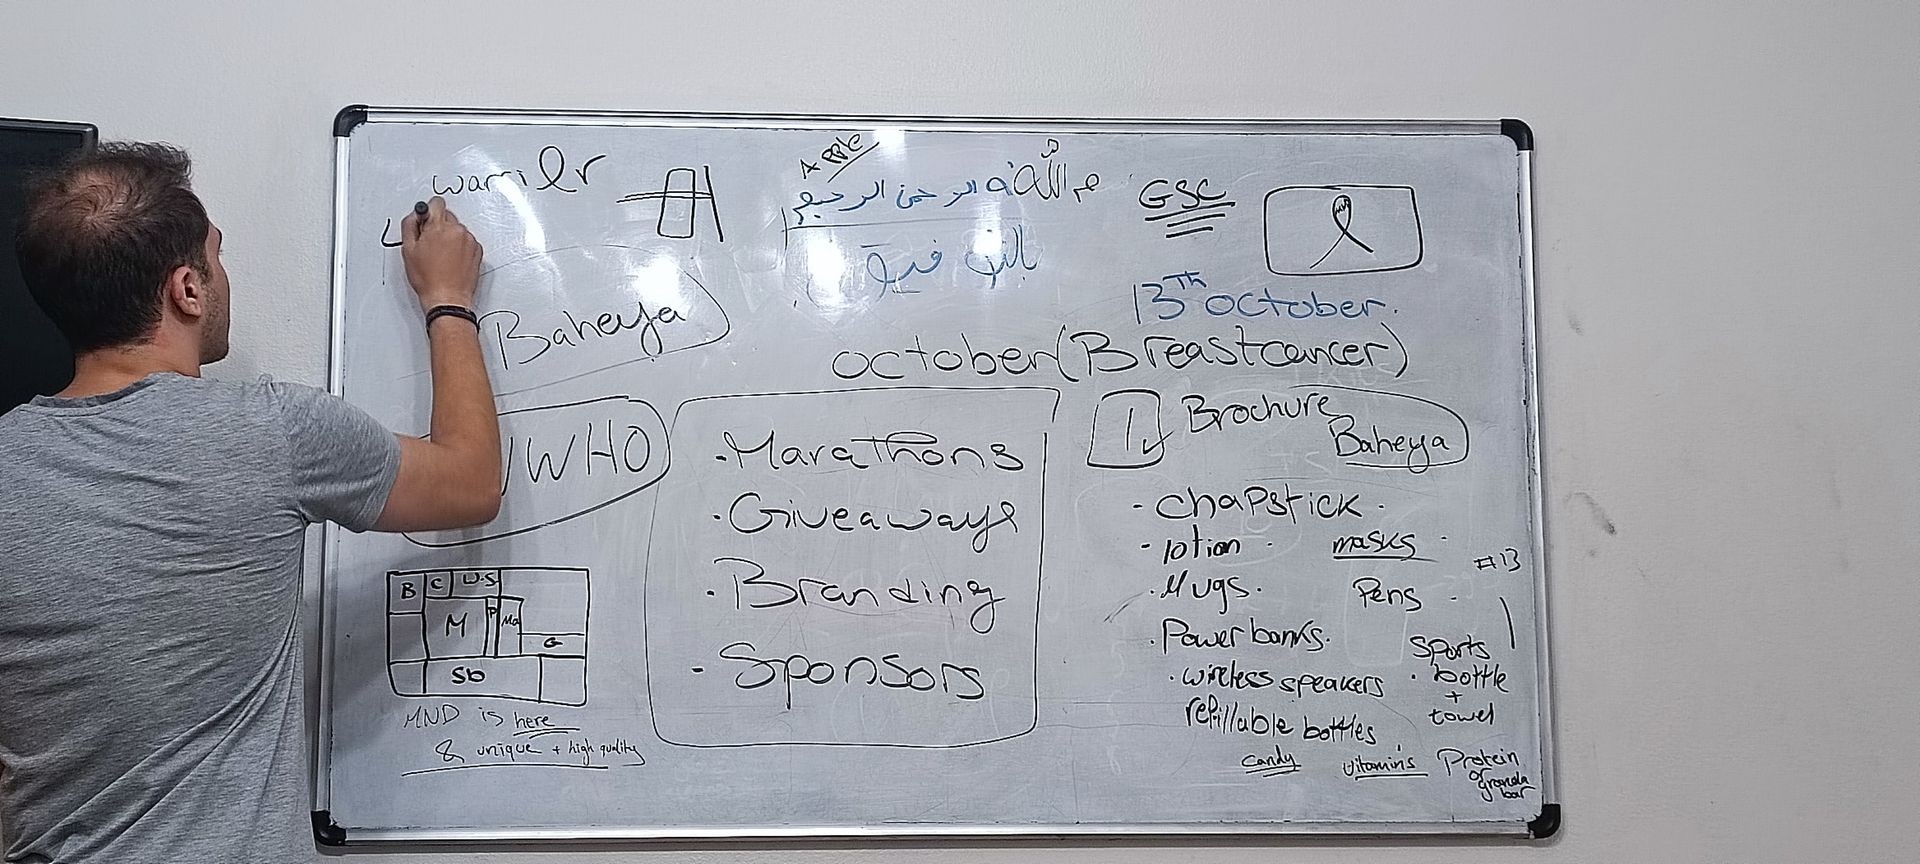 warrior
Apple
بسم الله الرحمن الرحيم
بالتوفيق
GSC
13Th october.
Baheya
october (Breast cancer)
WHO
. Marathons
. Giveaways
. Branding
- Sponsors
1 Brochure
Baheya
- chapstick.
- lotion . masks .
. Mugs. Pens .
#13
. Powerbanks.
. wireless speakers
refillable bottles
. sports
bottle
+
towel
candy
vitamins
Protein
or granola
bar
B C W.S
M P Ma
G
Sb
MND is here
& unique + high quality